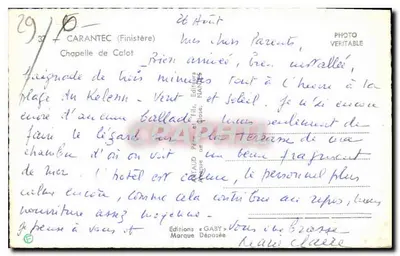 29/6
26 Août
37 - CARANTEC (Finistère)
Chapelle de Calot
PHOTO
VERITABLE
Mes chers Parents,
Bien arrivée, bien installée,
baignade de trois minutes tout à l'heure à la
plage du Kelenn. Vent et soleil. Je n'ai encore
d'aucune ballade mais seulement
faire le lézard sur la terrasse de ma
chambre d'où on voit un beau fragment
de mer. L'hôtel est calme, le personnel plus
calme encore, comme cela contribue au repos,
nourriture assez moyenne.
Je pense à vous et
vous embrasse
Marie Claire
Editions "GABY"
Marque Déposée